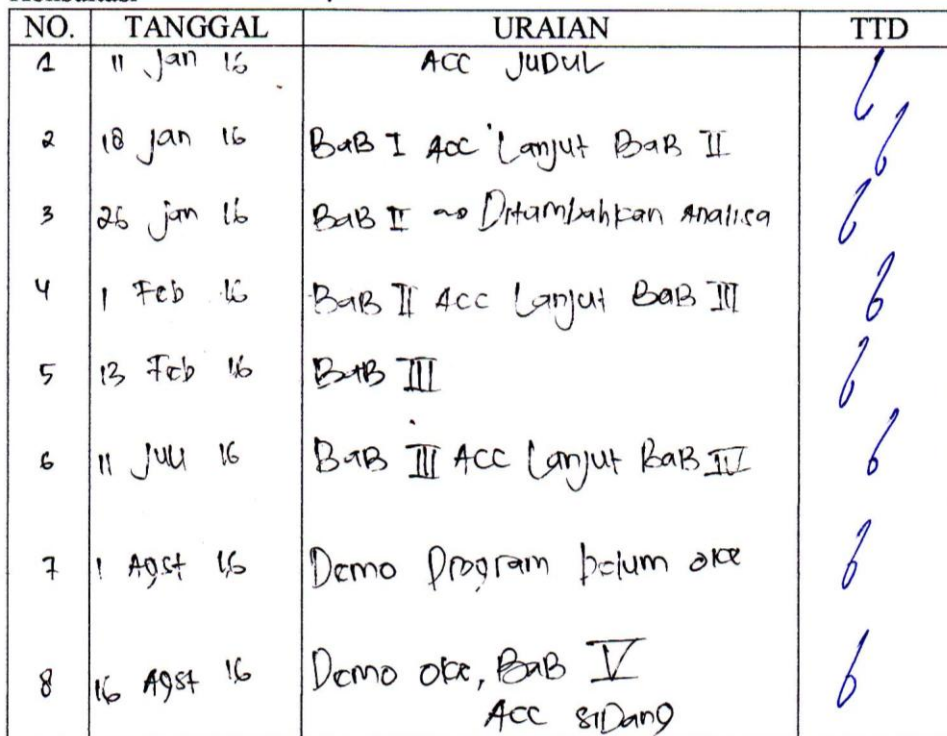 NO. TANGGAL URAIAN TTD
1 11 Jan 16 ACC JUDUL
2 18 Jan 16 BAB I ACC Lanjut BAB II
3 26 Jan 16 BAB II ~> Ditambahkan Analisa
4 1 Feb 16 BAB II ACC Lanjut BAB III
5 13 Feb 16 BAB III
6 11 Juli 16 BAB III ACC Lanjut BAB IV
7 1 Agst 16 Demo Program belum oke
8 16 Agst 16 Demo oke, BAB V
ACC SIDang